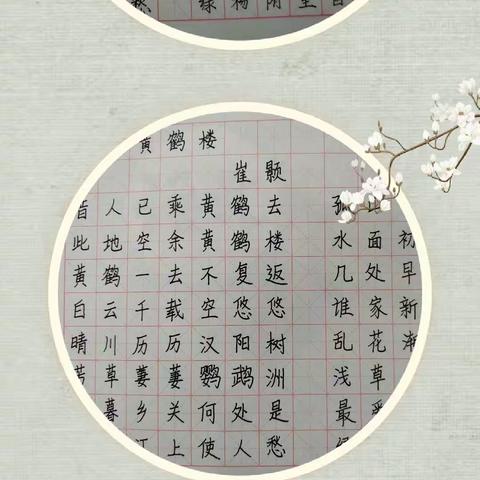 黄鹤楼
崔颢
昔人已乘黄鹤去
此地空余黄鹤楼
黄鹤一去不复返
白云千载空悠悠
晴川历历汉阳树
芳草萋萋鹦鹉洲
暮乡关何处是
江上使人愁
孤
水面初
几处早
谁家新
乱花渐
浅草
最